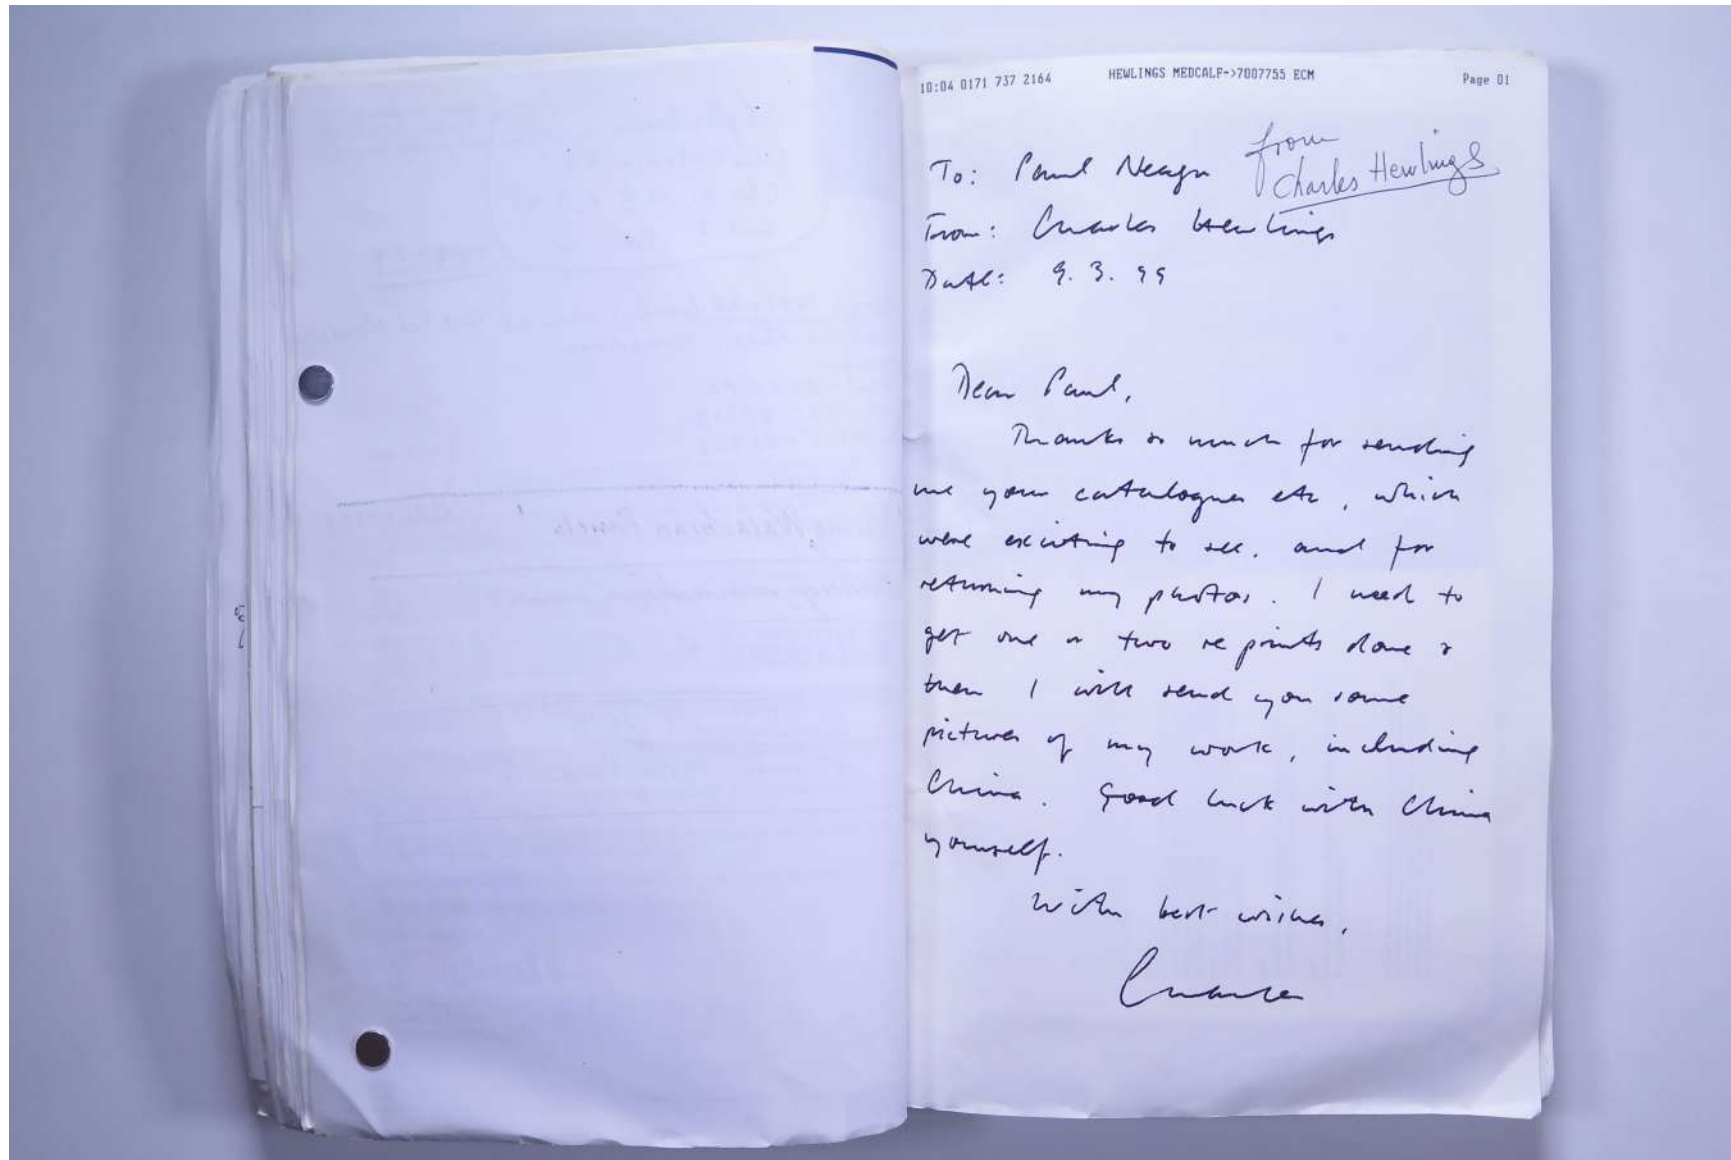 10:04 0171 737 2164 HEWLINGS MEDCALF->7007755 ECM Page 01
from
Charles Hewlings
To: Paul Neagu
From: Charles Hewlings
Date: 9.3.99
Dear Paul,
Thanks so much for sending
me your catalogues etc, which
were exciting to see, and for
returning my photos. I need to
get one or two reprints done &
then I will send you some
pictures of my work, including
China. Good luck with China
yourself.
With best wishes,
Charles